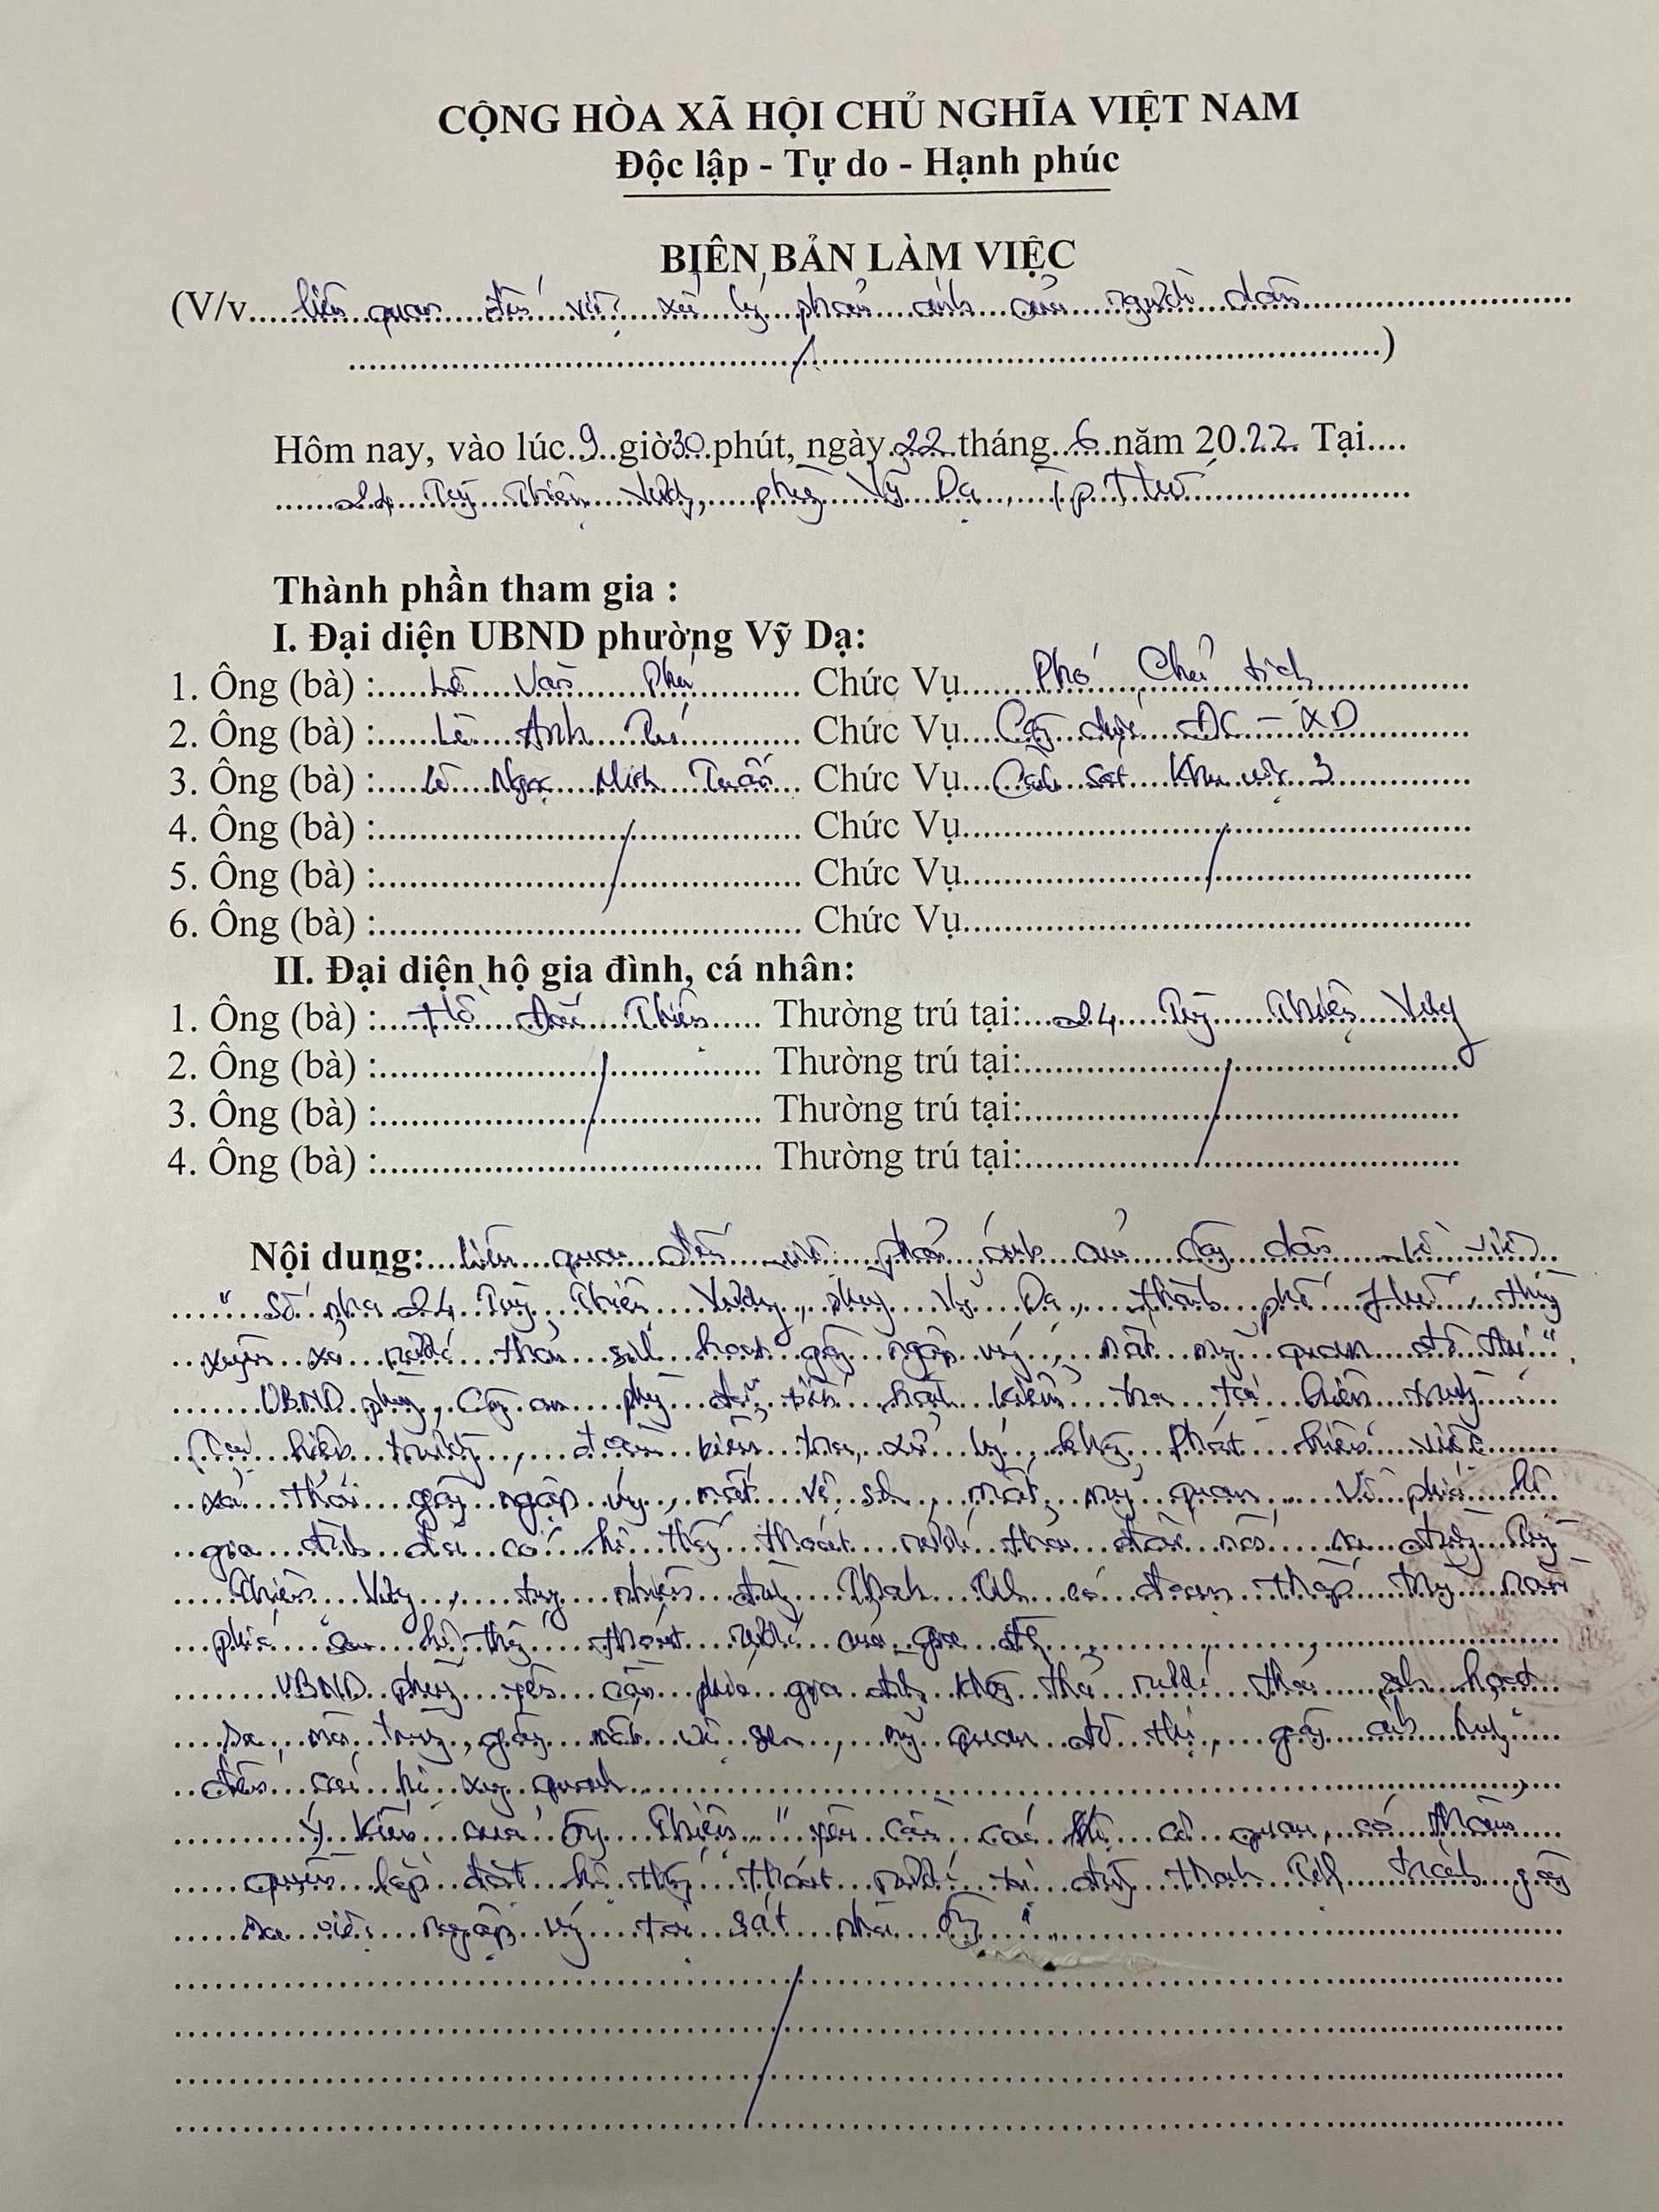 CỘNG HÒA XÃ HỘI CHỦ NGHĨA VIỆT NAM
Độc lập - Tự do - Hạnh phúc
BIÊN BẢN LÀM VIỆC
(V/v.... liên quan đến việc xử lý phản ánh của người dân....
....)
Hôm nay, vào lúc 9 giờ 30 phút, ngày 22 tháng 6 năm 2022. Tại....
24 Tùy Thiện Vương, phường Vỹ Dạ, Tp Huế
Thành phần tham gia :
I. Đại diện UBND phường Vỹ Dạ:
1. Ông (bà) : Lê Văn Phú Chức Vụ Phó Chủ tịch
2. Ông (bà) : Lê Anh Tú Chức Vụ Công chức ĐC - XD
3. Ông (bà) : Lê Ngọc Minh Tuấn Chức Vụ Cảnh sát khu vực 3
4. Ông (bà) : Chức Vụ
5. Ông (bà) : Chức Vụ
6. Ông (bà) : Chức Vụ
II. Đại diện hộ gia đình, cá nhân:
1. Ông (bà) : Hồ Thiên Thường trú tại: 24 Tùy Thiện Vương
2. Ông (bà) : Thường trú tại:
3. Ông (bà) : Thường trú tại:
4. Ông (bà) : Thường trú tại:
Nội dung: liên quan đến việc phản ánh của công dân về việc
" Số nhà 24 Tùy Thiện Vương, phường Vỹ Dạ, thành phố Huế, thường
xuyên xả nước thải sinh hoạt gây ngập úng, mất mỹ quan đô thị".
UBND phường, Công an phường đã tiến hành kiểm tra tại hiện trường
Tại hiện trường, đoàn kiểm tra, xử lý không phát hiện việc
xả thải gây ngập úng, mất vệ sinh, mất mỹ quan. Về phía hộ
gia đình đã có hệ thống thoát nước thải đấu nối ra đường Tùy
Thiện Vương, tuy nhiên đường Thanh Tịnh có đoạn thấp trũng nằm
phía sau hệ thống thoát nước của gia đình
UBND phường yêu cầu phía gia đình không thải nước thải sinh hoạt
ra môi trường, gây mất vệ sinh, mỹ quan đô thị, gây ảnh hưởng
đến các hộ xung quanh
Ý kiến của ông Thiên: "yêu cầu các cơ quan có thẩm
quyền lắp đặt hệ thống thoát nước tại đường Thanh Tịnh tránh gây
ra việc ngập úng tại sát nhà ông".